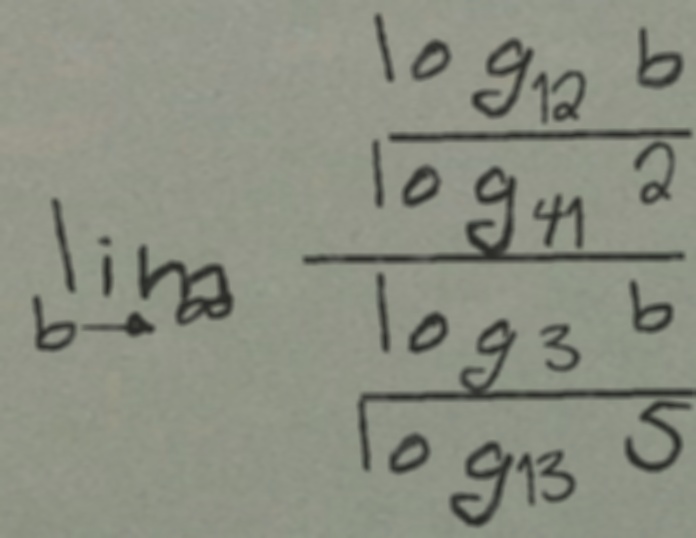 \lim_{b \to \infty} \frac{\frac{\log_{12} b}{\log_{41} 2}}{\frac{\log_{3} b}{\log_{13} 5}}